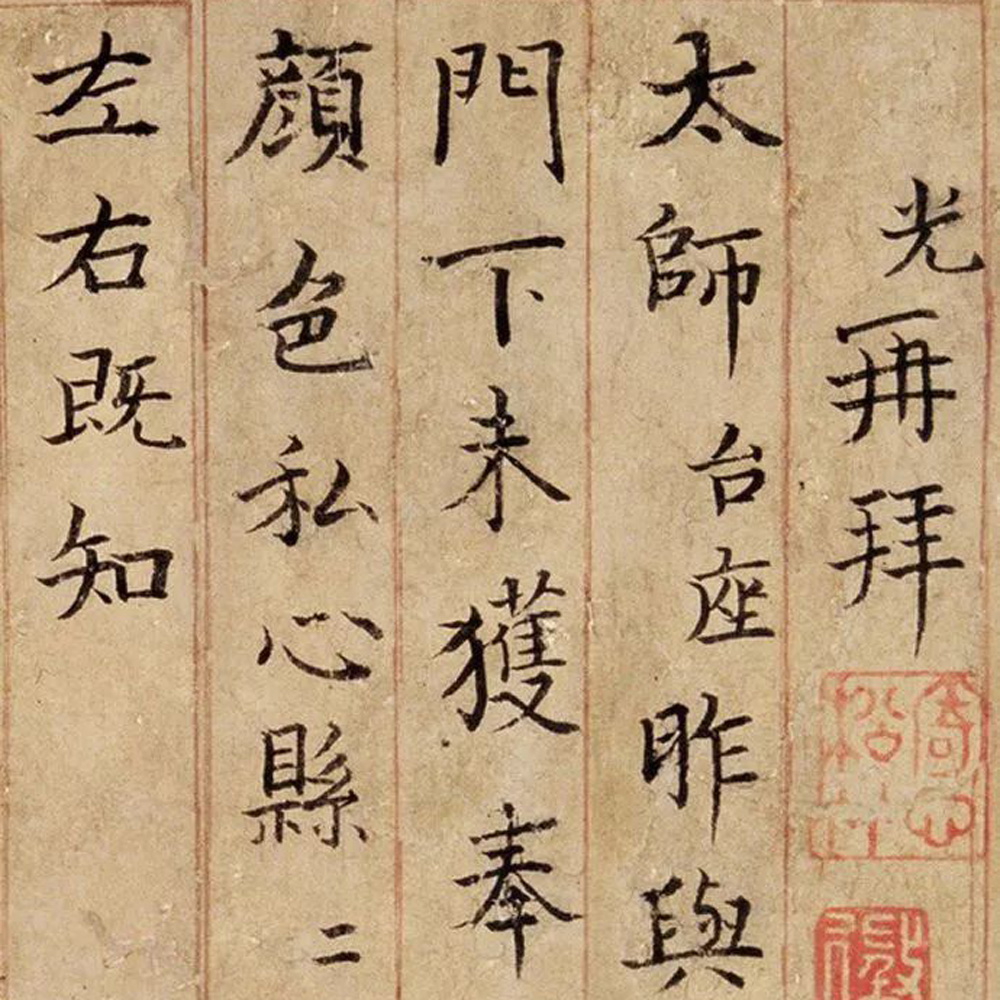 光再拜
太師台座昨與
門下未獲奉
顏色私心縣二
左右既知